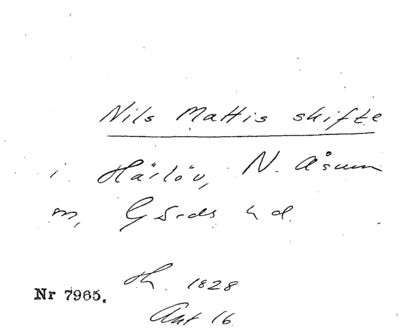 Nils Mattis skifte
i Härlöv, N. Åsum
m, Gärds hd.
Nr 7965.
Hh. 1828
Akt 16